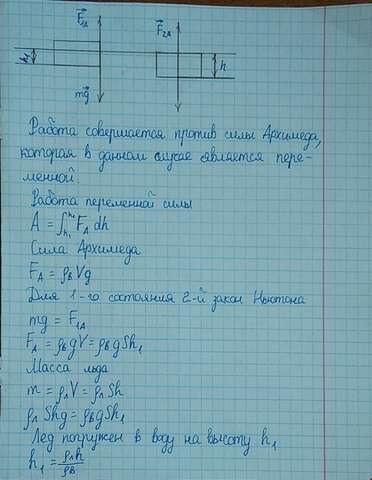 F⃗₁A
F⃗₂A
h₁
h
mg⃗
Работа совершается против силы Архимеда,
которая в данном случае является пере-
менной.
Работа переменной силы
A = ∫ₕ₁ʰ² F_A dh
Сила Архимеда
F_A = ρ_в Vg
Для 1-го состояния 2-й закон Ньютона
mg = F₁A
F_A = ρ_в gV = ρ_в gSh₁
Масса льда
m = ρ_л V = ρ_л Sh
ρ_л Shg = ρ_в gSh₁
Лед погружен в воду на высоту h₁
h₁ = ρ_л h / ρ_в